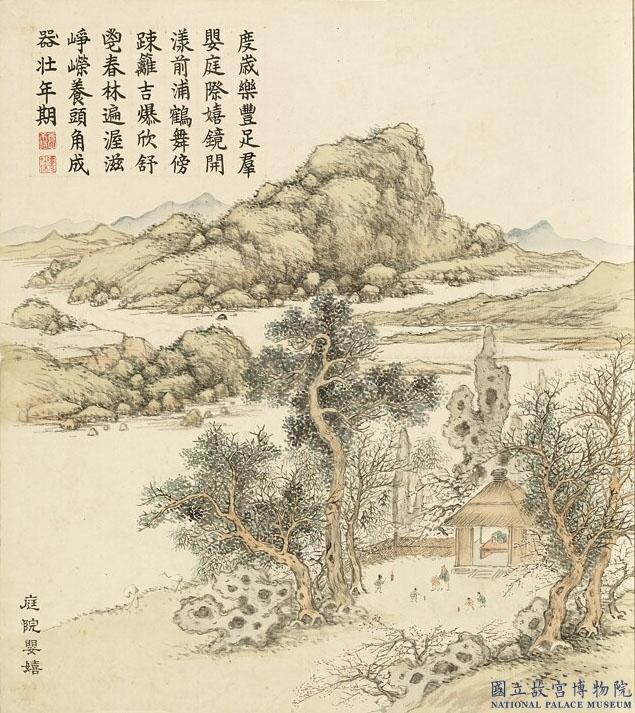 度歲樂豐足羣
嬰庭際嬉鏡開
漾前浦鶴舞傍
疎籬吉爆欣舒
鬯春林遍渥滋
崢嶸養頭角成
器壯年期
庭院嬰嬉
國立故宮博物院
NATIONAL PALACE MUSEUM